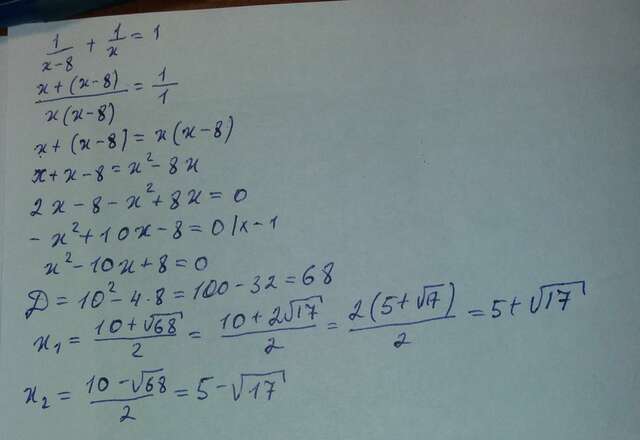 1/(x-8) + 1/x = 1
(x+(x-8))/(x(x-8)) = 1/1
x+(x-8)=x(x-8)
x+x-8=x²-8x
2x-8-x²+8x=0
-x²+10x-8=0|x-1
x²-10x+8=0
Д=10²-4·8=100-32=68
x₁ = (10+√68)/2 = (10+2√17)/2 = (2(5+√17))/2 = 5+√17
x₂ = (10-√68)/2 = 5-√17